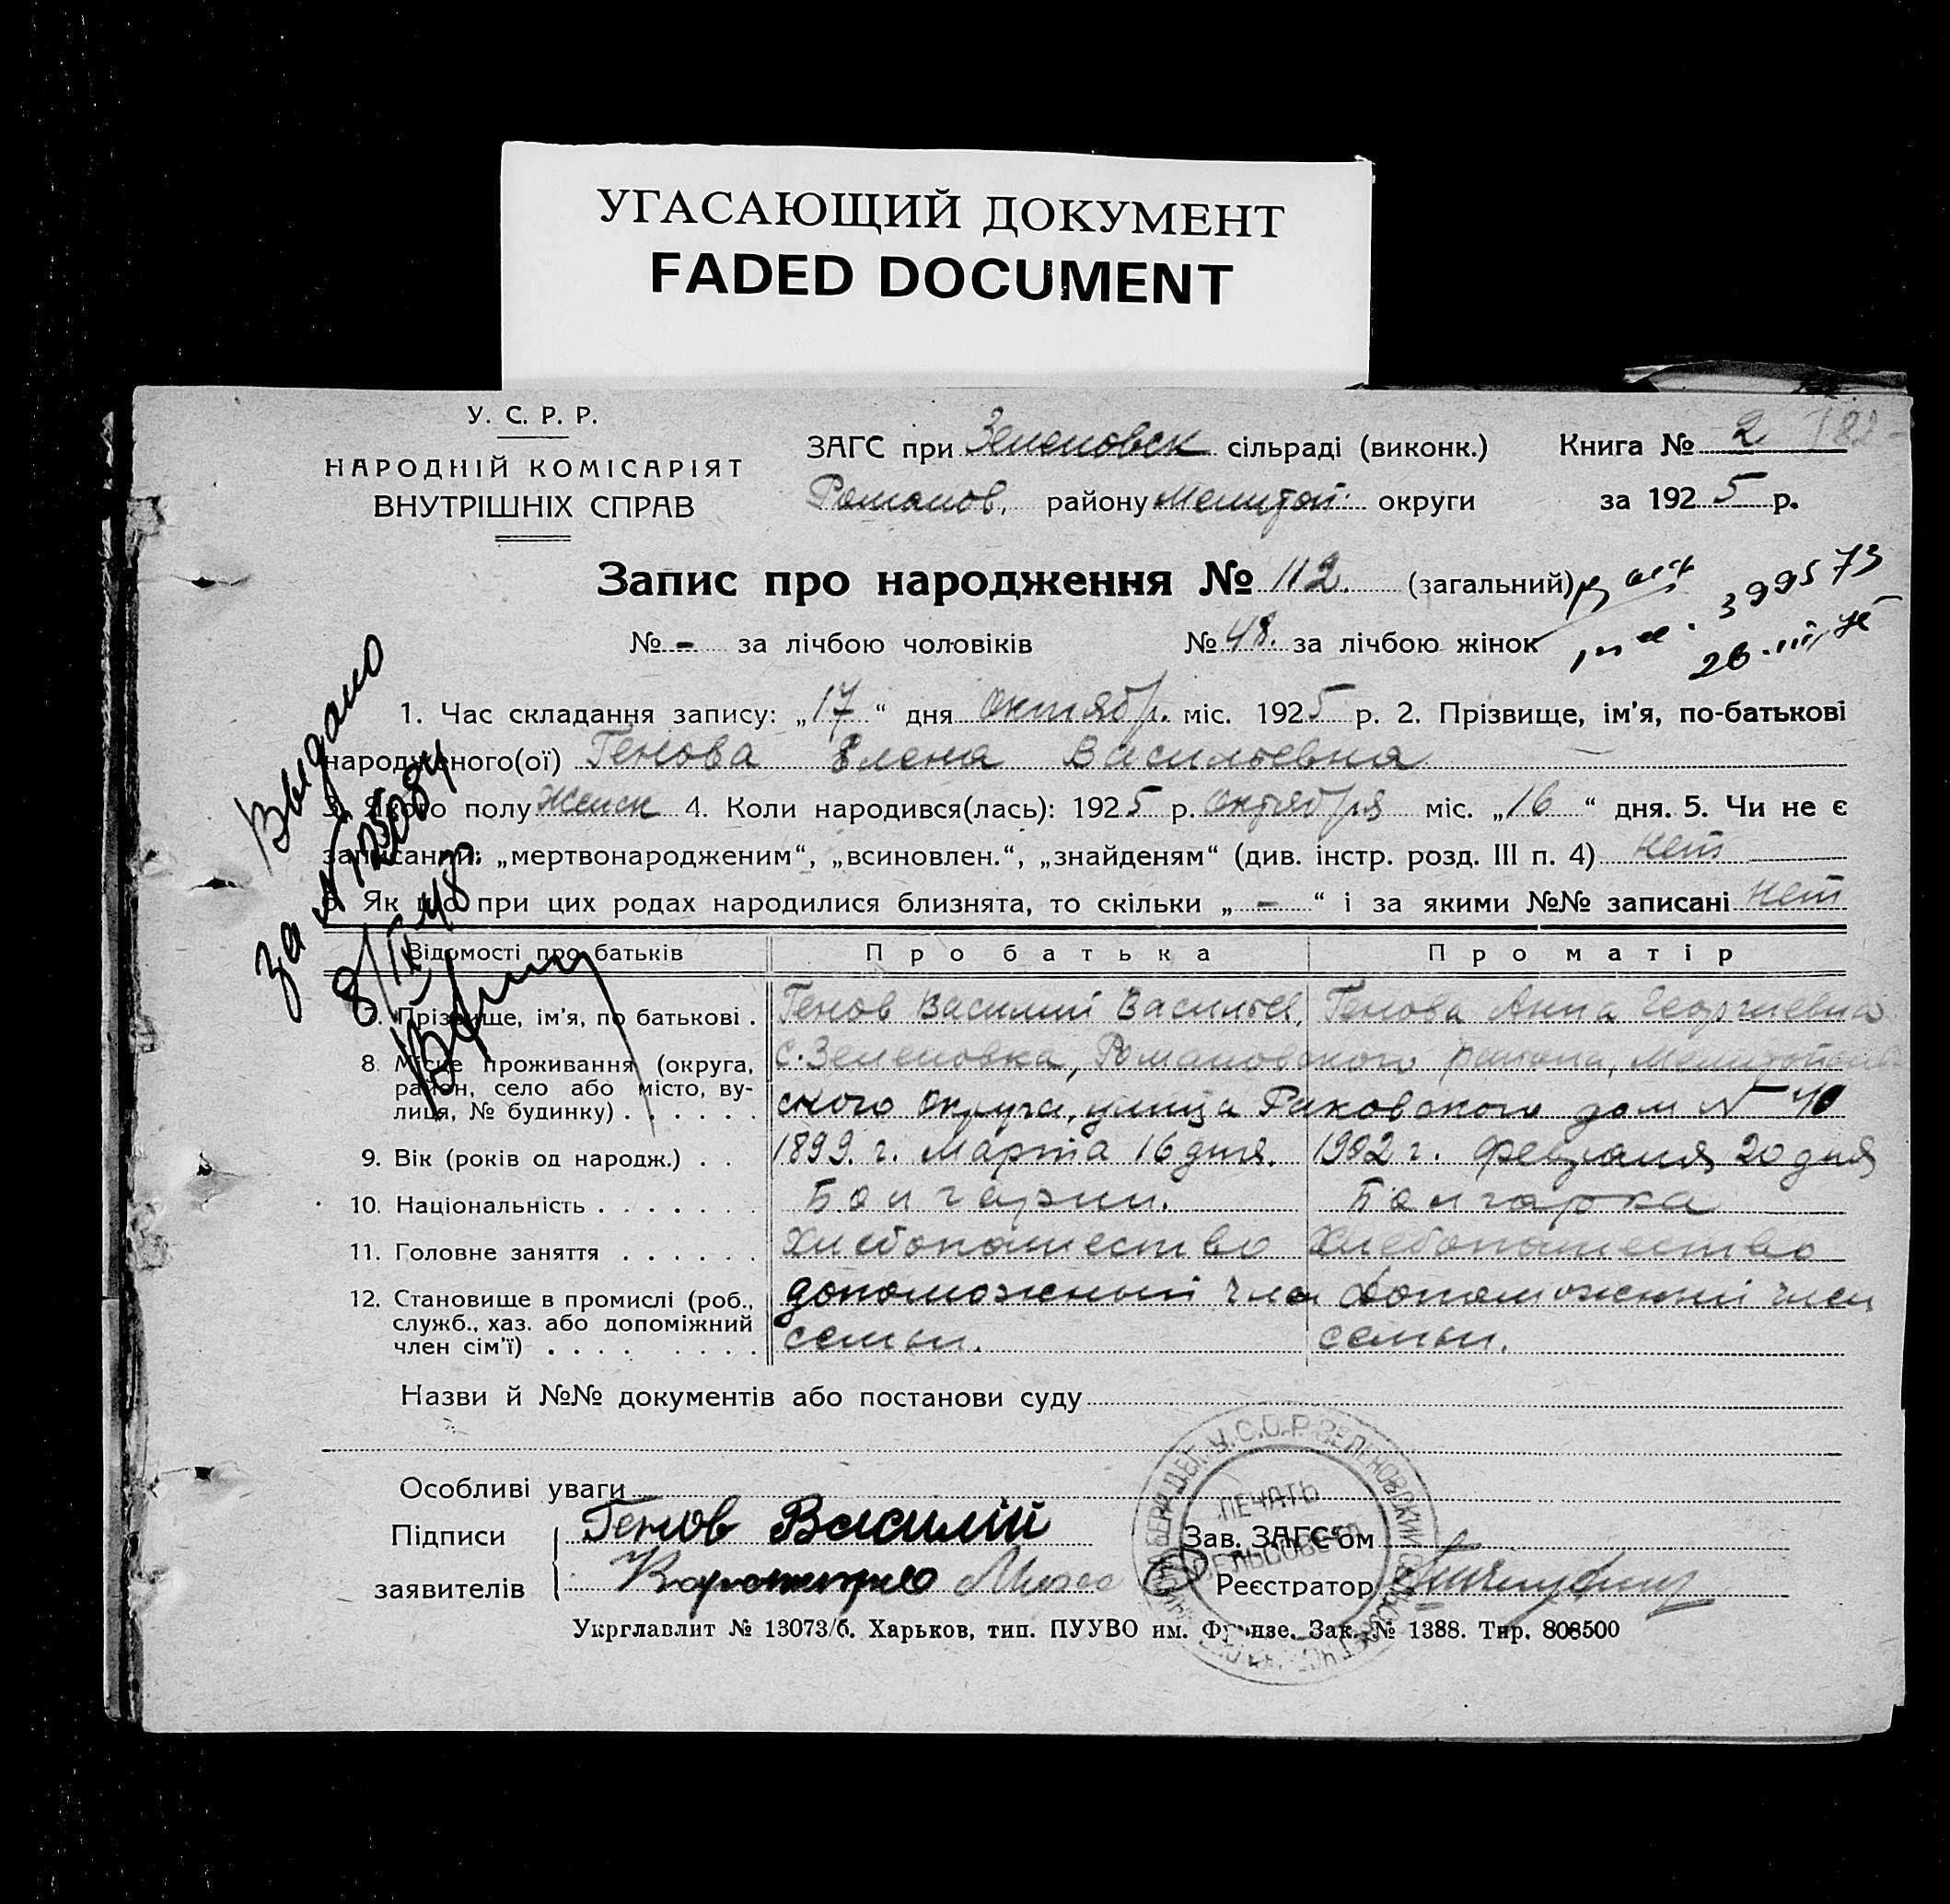 УГАСАЮЩИЙ ДОКУМЕНТ
FADED DOCUMENT
У. С. Р. Р.
НАРОДНІЙ КОМІСАРІЯТ
ВНУТРІШНІХ СПРАВ
ЗАГС при Зеленовск сільраді (виконк.)
Романов. району Мелитоп. округи
Книга № 2 182
за 1925 р.
Запис про народження № 112. (загальний)
399573
№ - за лічбою чоловіків № 48. за лічбою жінок
1. Час складання запису: „17“ дня октябр. міс. 1925 р. 2. Прізвище, ім’я, по-батькові
народженого(ої) Генова Елена Васильевна
3. Якого полу женск 4. Коли народився(лась): 1925 р. октября міс. „16“ дня. 5. Чи не є
записаний: „мертвонародженим“, „всиновлен.“, „знайденям“ (див. інстр. розд. III п. 4) нет
6. Як що при цих родах народилися близнята, то скільки „ - “ і за якими №№ записані нет
Выдано
за №
8/II 48
Відомості про батьків Про батька Про матір
7. Прізвище, ім’я, по батькові . Генов Василий Васильев, Генова Анна Георгиевна
8. Місце проживання (округа, район, село або місто, вулиця, № будинку) . . . . . . с. Зеленовка, Романовского района, Мелитополь
ского округа, улица Раковского дом № 40
9. Вік (років од народж.) . . 1899. г. Марта 16 дня. 1902 г. февраля 20 дня
10. Національність . . . . . . . Болгарин. Болгарка
11. Головне заняття . . . . . . Хлебопашество Хлебопашество
12. Становище в промислі (роб., служб., хаз. або допоміжний член сім’ї) . . . . . . . . допоможеный член допоможеный член
семьи. семьи.
Назви й №№ документів або постанови суду
Особливі уваги
Підписи Генов Василій
заявителів
Зав. ЗАГС’ом
Реєстратор
У.С.С.Р. ЗЕЛЕНОВСКИЙ
ПЕЧАТЬ
СЕЛЬСОВЕТА
Укрглавлит № 13073/б. Харьков, тип. ПУУВО им. Фрунзе. Зак. № 1388. Тир. 808500